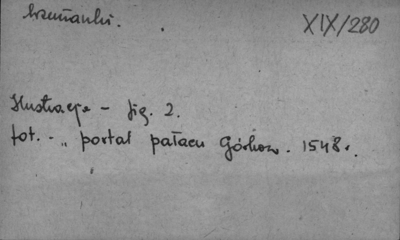 XIX/280
Ilustracje - fig. 2.
fot. - „ portal pałacu Górków. 1548.